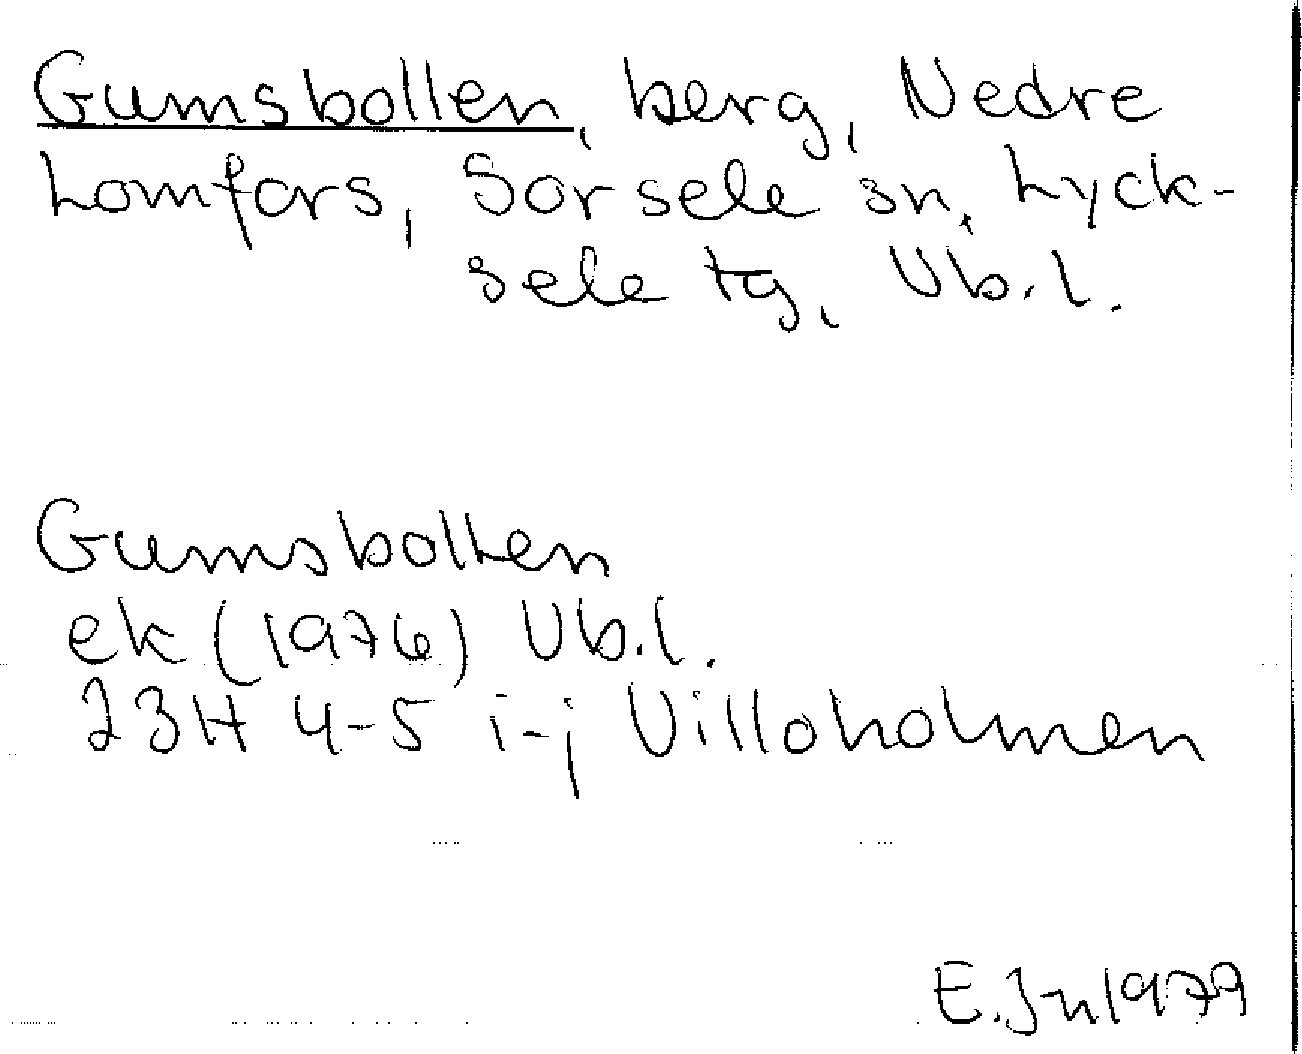 Gumsbollen, berg, Nedre
Lomfors, Sorsele sn, Lyck-
sele tg, Vb.l.
Gumsbollen
ek (1976) Vb.l.
23H 4-5 i-j Villoholmen
E.Jn 1979